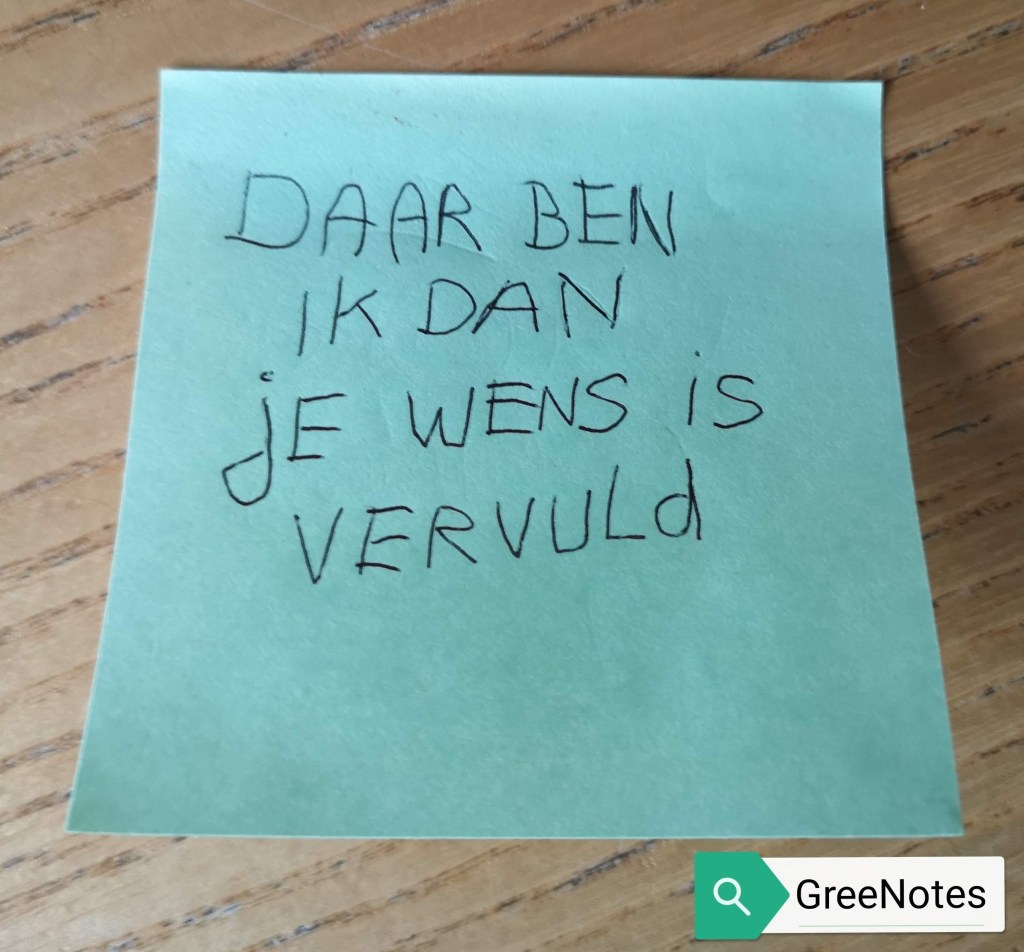 DAAR BEN
IK DAN
jE WENS iS
VERVULd
GreeNotes